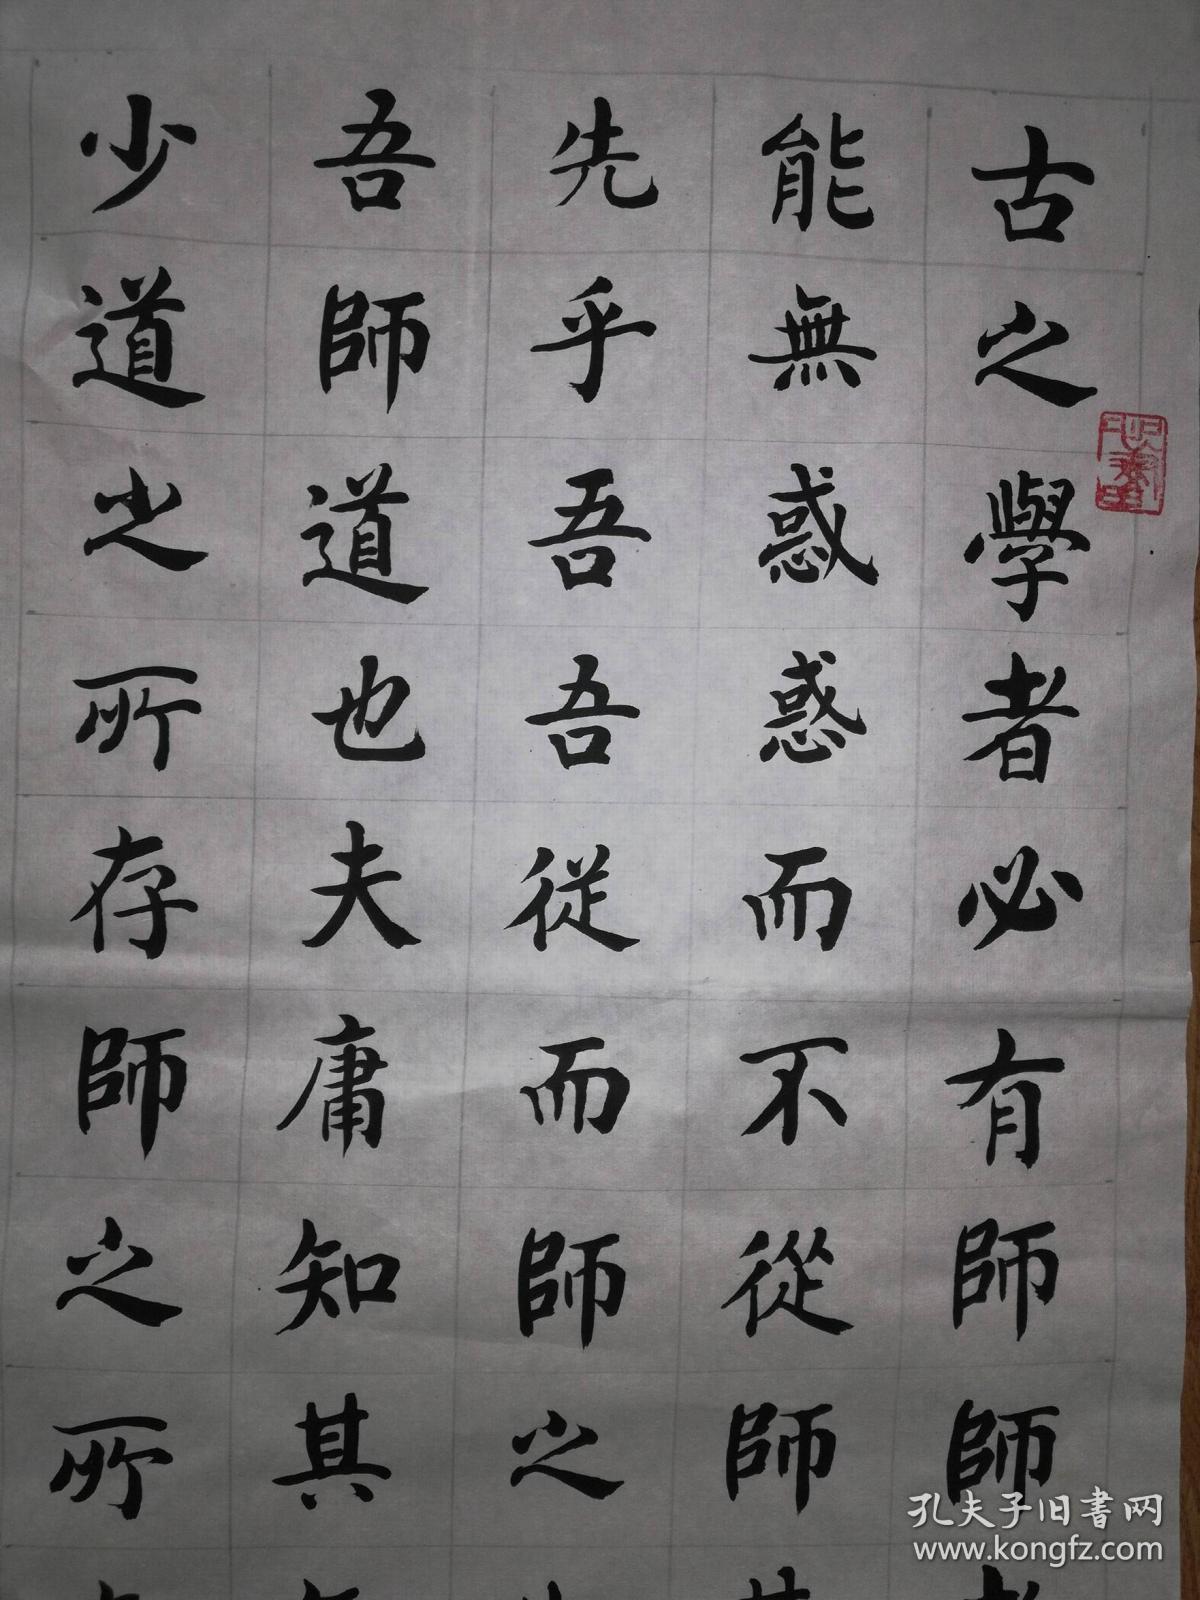 古之學者必有師師者
能無惑惑而不從師其
先乎吾吾從而師之
吾師道也夫庸知其
少道之所存師之所
孔夫子旧書网
www.kongfz.com